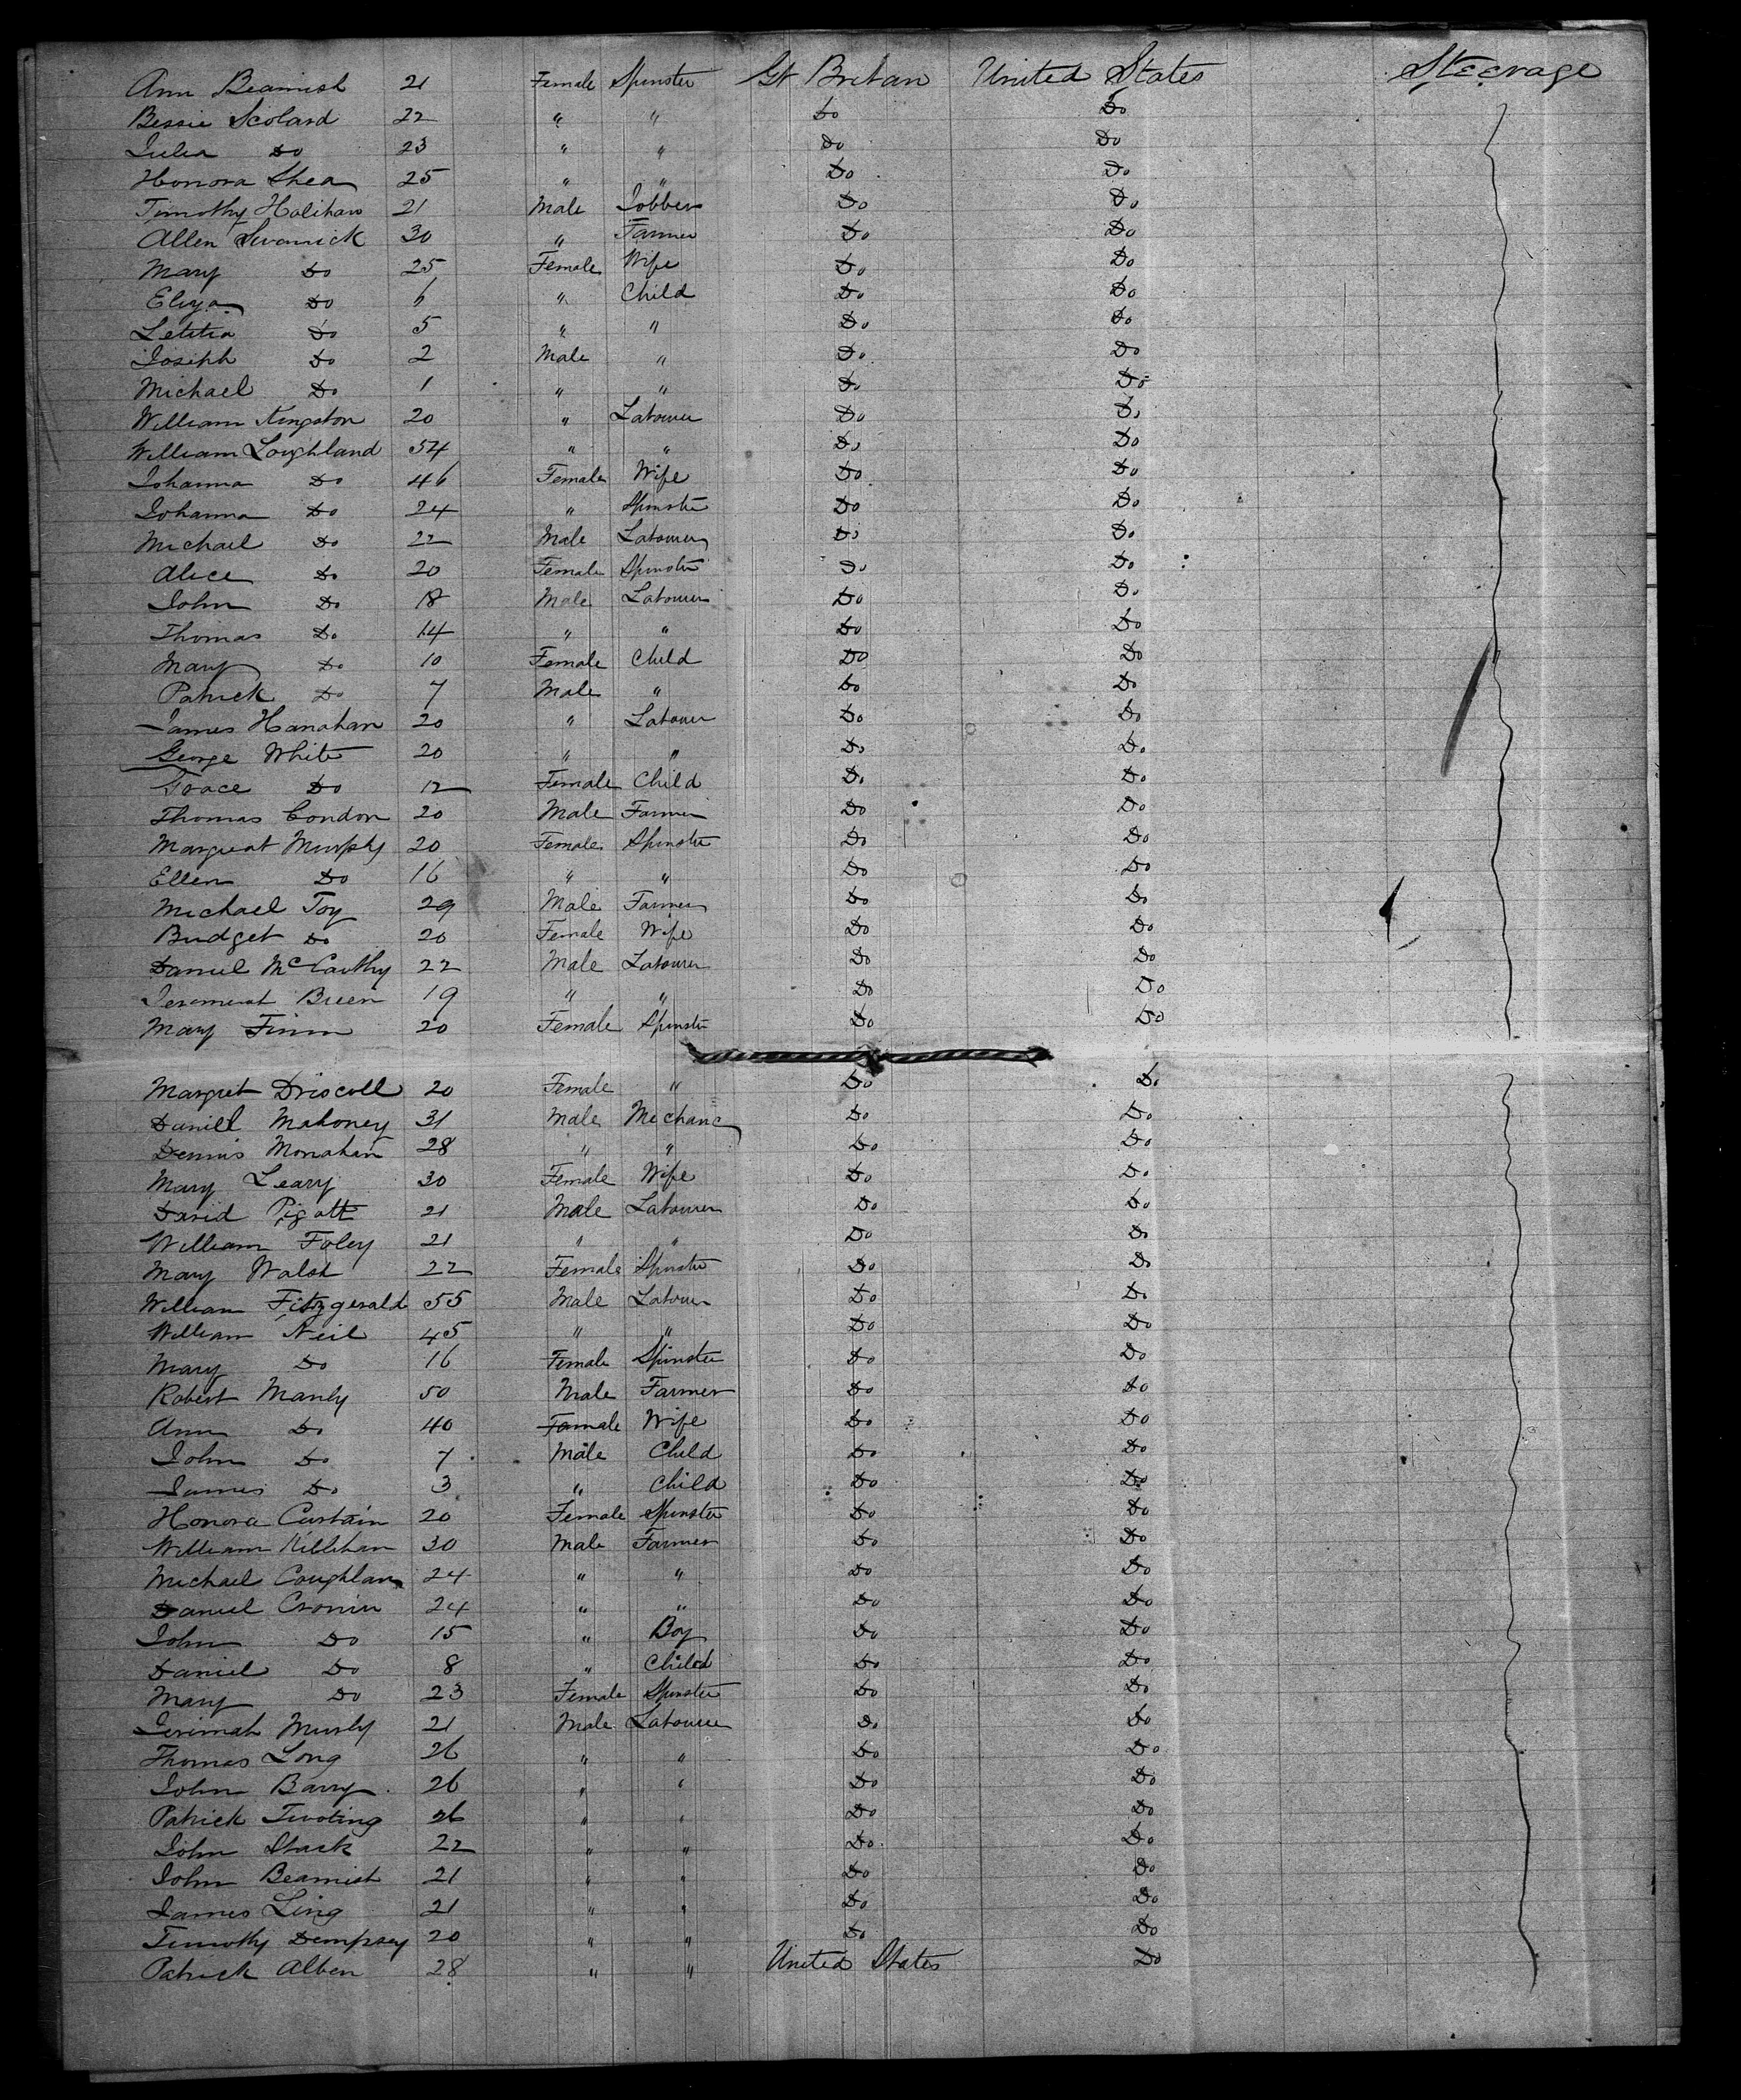 Ann Beamish 21 Female Spinster Gt Bretan United States Steerage
Bessie Scoland 22 " " Do Do
Julia Do 23 " " Do Do
Honora Shea 25 " " Do Do
Timothy Halihan 21 Male Jobber Do Do
Allen Swanick 30 " Farmer Do Do
Mary Do 25 Female Wife Do Do
Eliza Do 6 " Child Do Do
Letitia Do 5 " " Do Do
Joseph Do 2 Male " Do Do
Michael Do 1 " " Do Do
William Kingston 20 " Labourer Do Do
William Loughland 54 " " Do Do
Johanna Do 46 Female Wife Do Do
Johanna Do 24 " Spinster Do Do
Michael Do 22 Male Labourer Do Do
Alice Do 20 Female Spinster Do Do
John Do 18 Male Labourer Do Do
Thomas Do 14 " " Do Do
Mary Do 10 Female Child Do Do
Patrick Do 7 Male " Do Do
James Hanahan 20 " Labourer Do Do
George White 20 " " Do Do
Grace Do 12 Female Child Do Do
Thomas Condon 20 Male Farmer Do Do
Margreat Murphy 20 Female Spinster Do Do
Ellen Do 16 " " Do Do
Michael Joy 29 Male Farmer Do Do
Bridget Do 20 Female Wife Do Do
Daniel McCarthy 22 Male Labourer Do Do
Breen 19 " " Do Do
Mary Finn 20 Female Spinster Do Do
Margret Driscoll 20 Female " Do Do
Daniel Mahoney 31 Male Mechanc Do Do
Dennis Monahan 28 " " Do Do
Mary Leary 30 Female Wife Do Do
David Pigott 21 Male Labourer Do Do
William Foley 21 " " Do Do
Mary Walsh 22 Female Spinster Do Do
William Fitzgerald 55 Male Labourer Do Do
William Neil 45 " " Do Do
Mary Do 16 Female Spinster Do Do
Robert Manly 50 Male Farmer Do Do
Ann Do 40 Female Wife Do Do
John Do 7 Male Child Do Do
James Do 3 " Child Do Do
Honora Curtain 20 Female Spinster Do Do
William 30 Male Farmer Do Do
Michael Coughlan 24 " " Do Do
Daniel Cronin 24 " " Do Do
John Do 15 " Boy Do Do
Daniel Do 8 " Child Do Do
Mary Do 23 Female Spinster Do Do
Jerimah Murly 21 Male Labourer Do Do
Thomas Long 26 " " Do Do
John Barry 26 " " Do Do
Patrick Twoting 26 " " Do Do
John Stack 22 " " Do Do
John Beamish 21 " " Do Do
James Ling 21 " " Do Do
Timothy Dempsey 20 " " Do Do
Patrick Alben 28 " " United States Do